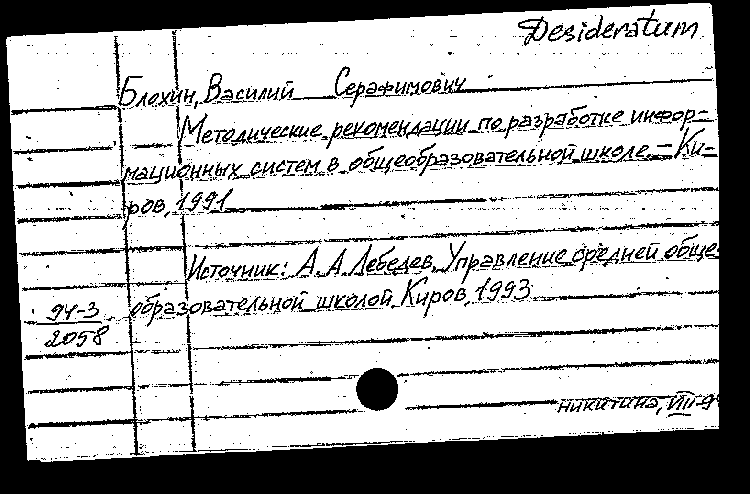 Desideratum
Блохин, Василий Серафимович
Методические рекомендации по разработке инфор-
мационных систем в общеобразовательной школе. – Ки-
ров, 1991
Источник: А. А. Лебедев. Управление средней обще-
образовательной школой. Киров, 1993
94-3
2058
никитина, VIII-94